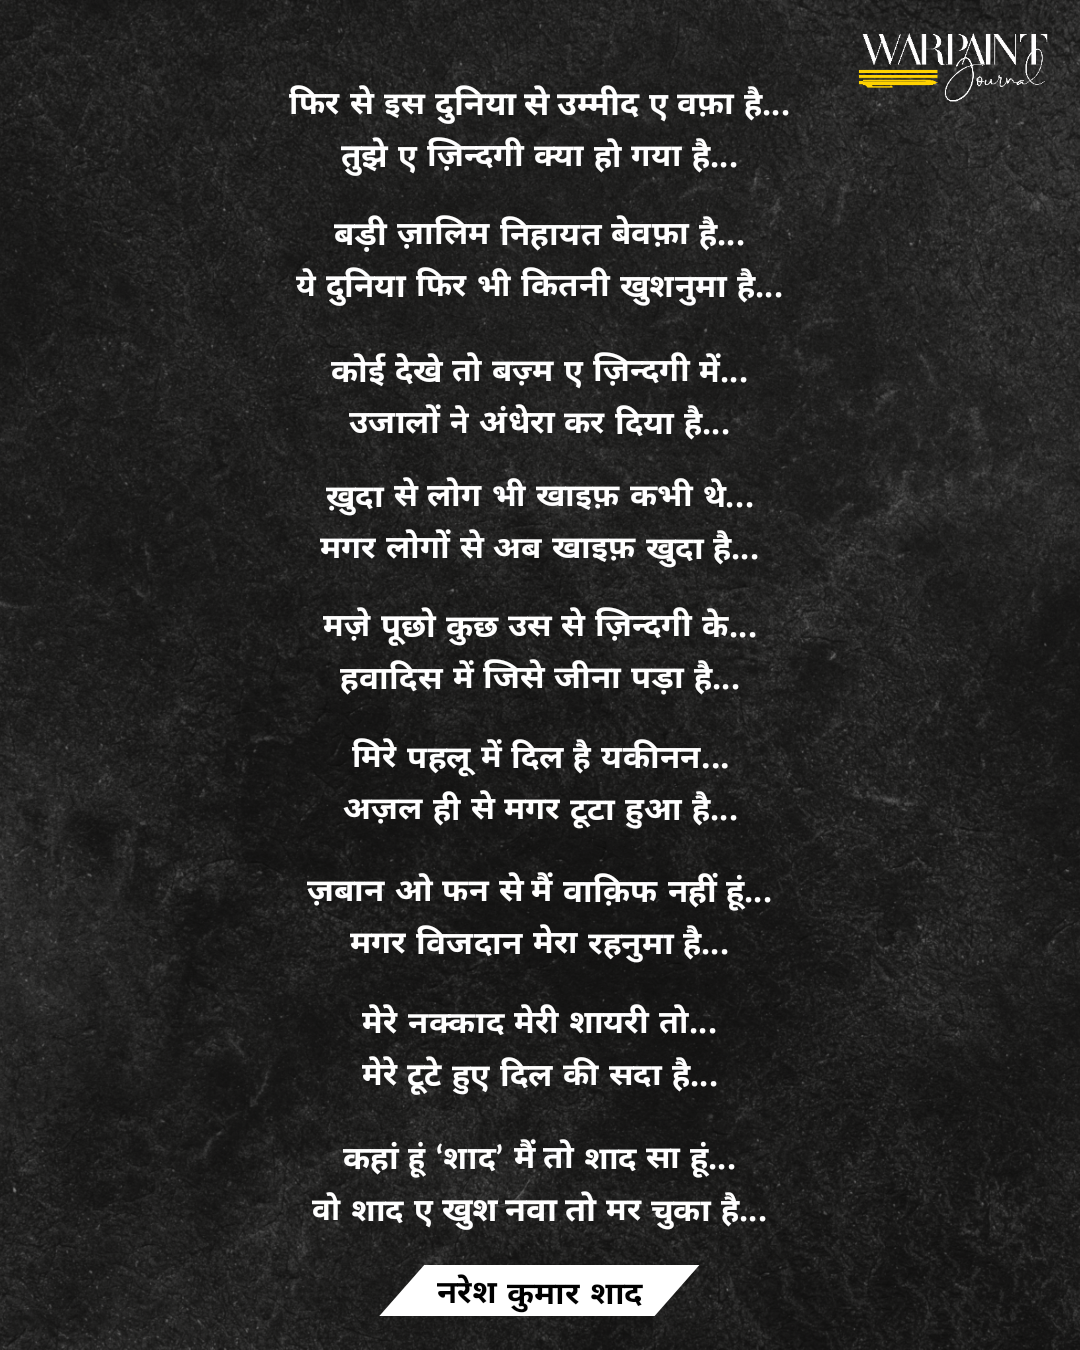 WARPAINT
Journal
फिर से इस दुनिया से उम्मीद ए वफ़ा है...
तुझे ए ज़िन्दगी क्या हो गया है...
बड़ी ज़ालिम निहायत बेवफ़ा है...
ये दुनिया फिर भी कितनी खुशनुमा है...
कोई देखे तो बज़्म ए ज़िन्दगी में...
उजालों ने अंधेरा कर दिया है...
ख़ुदा से लोग भी खाइफ़ कभी थे...
मगर लोगों से अब खाइफ़ खुदा है...
मज़े पूछो कुछ उस से ज़िन्दगी के...
हवादिस में जिसे जीना पड़ा है...
मिरे पहलू में दिल है यकीनन...
अज़ल ही से मगर टूटा हुआ है...
ज़बान ओ फन से मैं वाक़िफ नहीं हूं...
मगर विजदान मेरा रहनुमा है...
मेरे नक्काद मेरी शायरी तो...
मेरे टूटे हुए दिल की सदा है...
कहां हूं ‘शाद’ मैं तो शाद सा हूं...
वो शाद ए खुश नवा तो मर चुका है...
नरेश कुमार शाद